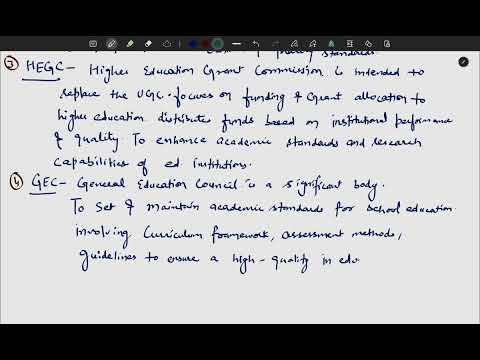 quality standards
③ HEGC - Higher Education Grant Commission is intended to
replace the UGC. focuses on funding & Grant allocation to
higher education distribute funds based on institutional performance
& quality. To enhance academic standards and research
Capabilities of ed. institutions.
④ GEC - General Education Council is a significant body.
To Set & maintain academic standards for school education
involving Curriculum framework, assessment methods,
guidelines to ensure a high-quality in edu